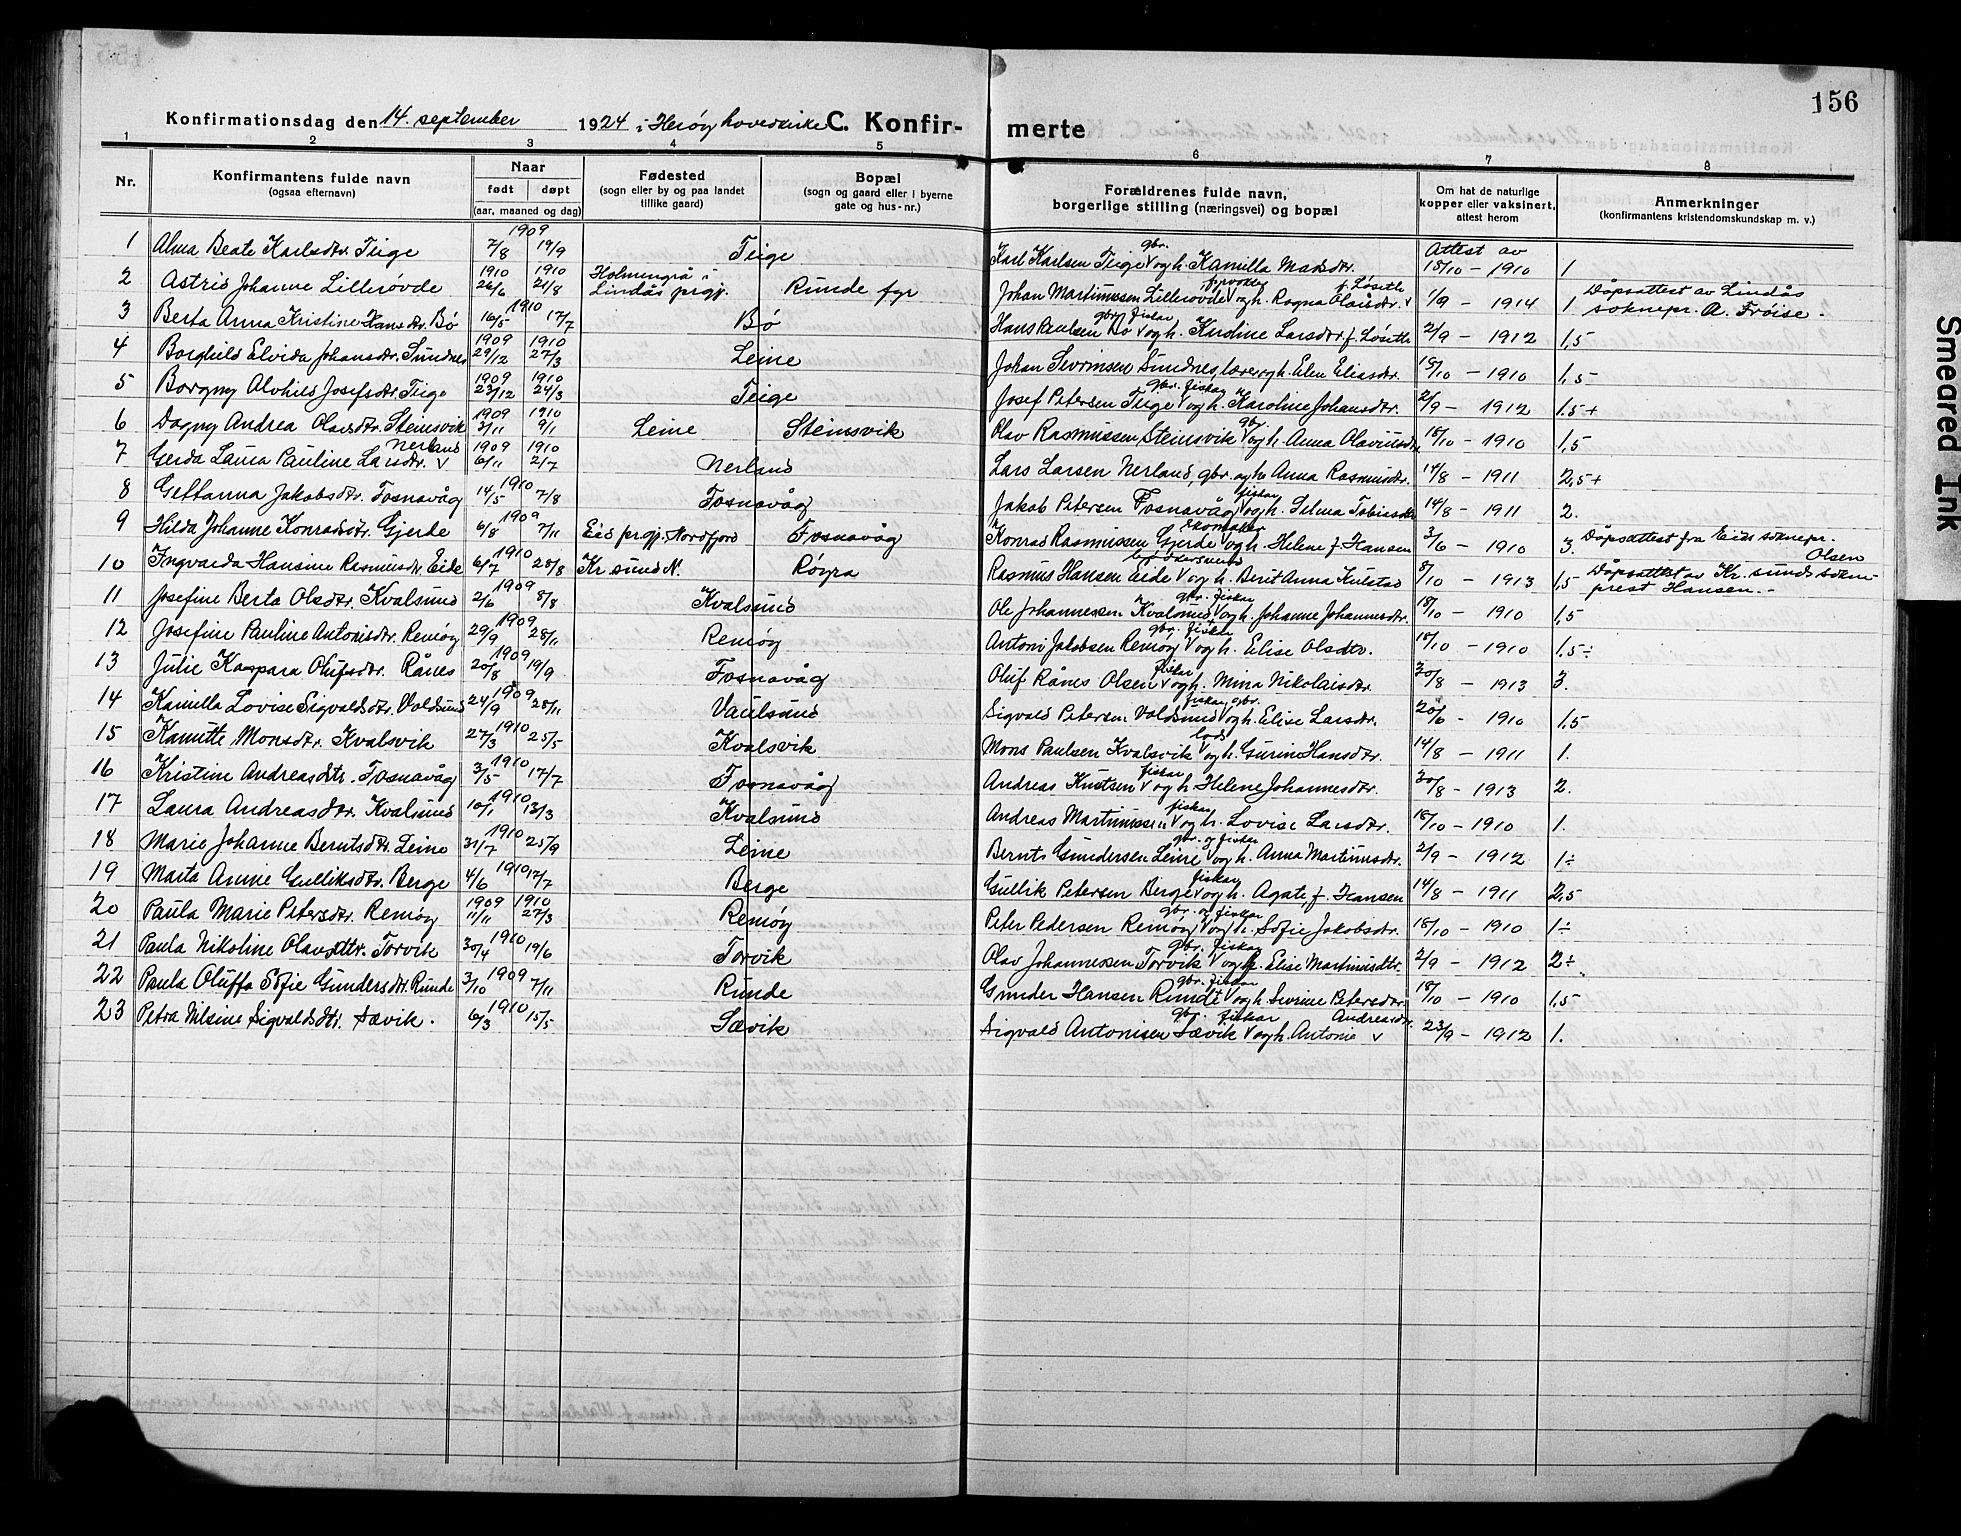 156
Konfirmationsdag den 14. september 1924 i Herøy hovedkirke C. Konfir- merte
1 2 3 4 5 6 7 8
Nr. Konfirmantens fulde navn (ogsaa efternavn) Naar født døpt (aar, maaned og dag) Fødested (sogn eller by og paa landet tillike gaard) Bopæl (sogn og gaard eller i byerne gate og hus-nr.) Forældrenes fulde navn, borgerlige stilling (næringsvei) og bopæl Om hat de naturlige kopper eller vaksinert, attest herom Anmerkninger (konfirmantens kristendomskundskap m. v.)
1 Alma Beate Karlsdtr. Teige 1909 7/8 19/9 Teige Karl Karlsen Teige gbr. og h. Kamilla Madsdtr. Attest av 18/10 - 1910 1
2 Astrid Johanne Lillerøvde 1910 26/6 1910 21/8 Holmengrå i Lindås prgj. Runde fyr Johan Martinussen Lillerøvde fyrvokter og h. Ragna Olaisdtr. f. Løseth 1/9 - 1914 1 Dåpsattest av Lindås soknepr. A. Frøise.
3 Berta Anna Kristine Hansdtr. Bø 1910 16/5 17/7 Bø Hans Paulsen Bø gbr. fiskar og h. Kristine Larsdtr. f. Løseth 2/9 - 1912 1,5
4 Borghild Elvida Johansdtr. Sundnes 1909 29/12 1910 27/3 Leine Johan Sevrinsen Sundnes, lærer og h. Elen Eliasdtr. 18/10 - 1910 1,5
5 Borgny Alvhild Josefsdtr. Teige 1909 23/12 1910 24/3 Teige Josef Petersen Teige gbr. fiskar og h. Karoline Johansdtr. 2/9 - 1912 1,5+
6 Dagny Andrea Olavsdtr. Steinsvik 1909 3/11 1910 9/1 Leine Steinsvik Olav Rasmussen Steinsvik gbr. og h. Anna Olaviusdtr. 18/10 - 1910 1,5
7 Gerda Laura Pauline Larsdtr. Nerland 1909 6/11 1910 2/7 Nerland Lars Larsen Nerland, gbr. og h. Anna Rasmusdtr. 14/8 - 1911 2,5+
8 Gettanna Jakobsdtr. Fosnavåg 1910 14/5 7/8 Fosnavåg Jakob Petersen Fosnavåg fiskar og h. Selma Tobiasdtr. 14/8 - 1911 2.
9 Hilda Johanne Konradsdtr. Gjerde 1909 6/8 7/11 Eid prgj. Nordfjord Fosnavåg Konrad Rasmussen Gjerde skomaker og h. Helene f. Hansen 3/6 - 1910 3. Dåpsattest fra Eids soknepr. Olsen
10 Ingvarda Hansine Rasmusdtr. Eide 1910 6/7 28/8 Kr.sund N. Røyra Rasmus Hansen Eide og h. Berit Anna Kulstad 8/10 - 1913 1,5 Dåpsattest av Kr.sunds sokneprest Hansen.
11 Josefine Berta Olsdtr. Kvalsund 1909 2/6 8/8 Kvalsund Ole Johannessen Kvalsund gbr. fiskar og h. Johanne Johannesdtr. 18/10 - 1910 1,5
12 Josefine Pauline Antonisdtr. Remøy 1909 29/9 28/11 Remøy Antoni Jakobsen Remøy gbr. fiskar og h. Elise Olsdtr. 18/10 - 1910 1,5÷
13 Julie Kaspara Olufsdtr. Rånes 1909 20/8 19/9 Fosnavåg Oluf Rånes Olsen fiskar og h. Mina Nikolaisdtr. 30/8 - 1913 3.
14 Kamilla Lovise Sigvaldsdtr. Voldsund 1909 24/9 28/11 Vaulsund Sigvald Petersen Voldsund fiskar gbr. og h. Elise Larsdtr. 20/6 - 1910 1,5
15 Kamitte Monsdtr. Kvalsvik 1910 27/3 25/5 Kvalsvik Mons Paulsen Kvalsvik lods og h. Gurine Hansdtr. 14/8 - 1911 1.
16 Kristine Andreasdtr. Fosnavåg 1910 3/5 17/7 Fosnavåg Andreas Knutsen fiskar og h. Helene Johannesdtr. 30/8 - 1913 2.
17 Laura Andreasdtr. Kvalsund 1910 10/1 13/3 Kvalsund Andreas Martinussen fiskar og h. Lovise Larsdtr. 18/10 - 1910 1.
18 Marie Johanne Berntsdtr. Leine 1910 31/7 25/9 Leine Bernts Gundersen Leine gbr. og fiskar og h. Anna Martinusdtr. 2/9 - 1912 1÷
19 Marta Amine Gulliksdtr. Berge 1910 4/6 17/7 Berge Gullik Petersen Berge fiskar og h. Agate f. Hansen 14/8 - 1911 2,5
20 Paula Marie Petersdtr. Remøy 1909 11/11 1910 27/3 Remøy Peter Pedersen Remøy gbr. og fiskar og h. Sofie Jakobsdtr. 18/10 - 1910 1÷
21 Paula Nikoline Olavsdtr. Torvik 1910 30/4 19/6 Torvik Olav Johannessen Torvik gbr. fiskar og h. Elise Martinusdtr. 2/9 - 1912 2÷
22 Paula Oluffa Sofie Gundersdtr. Runde 1909 3/10 7/11 Runde Gunder Hansen Runde gbr. fiskar og h. Sevrine Petersdtr. 18/10 - 1910 1,5
23 Petra Nilsine Sigvaldsdtr. Sævik. 1910 6/3 15/5 Sævik Sigvald Antonisen Sævik gbr. fiskar og h. Antonie Andreasdtr. 23/9 - 1912 1.
Smeared Ink